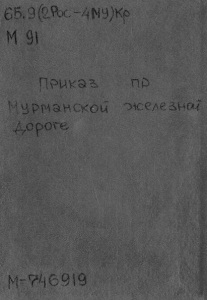 65.9(2Рос-4М9)Кр
М 91
Приказ по
Мурманской железной
дороге
М-746919